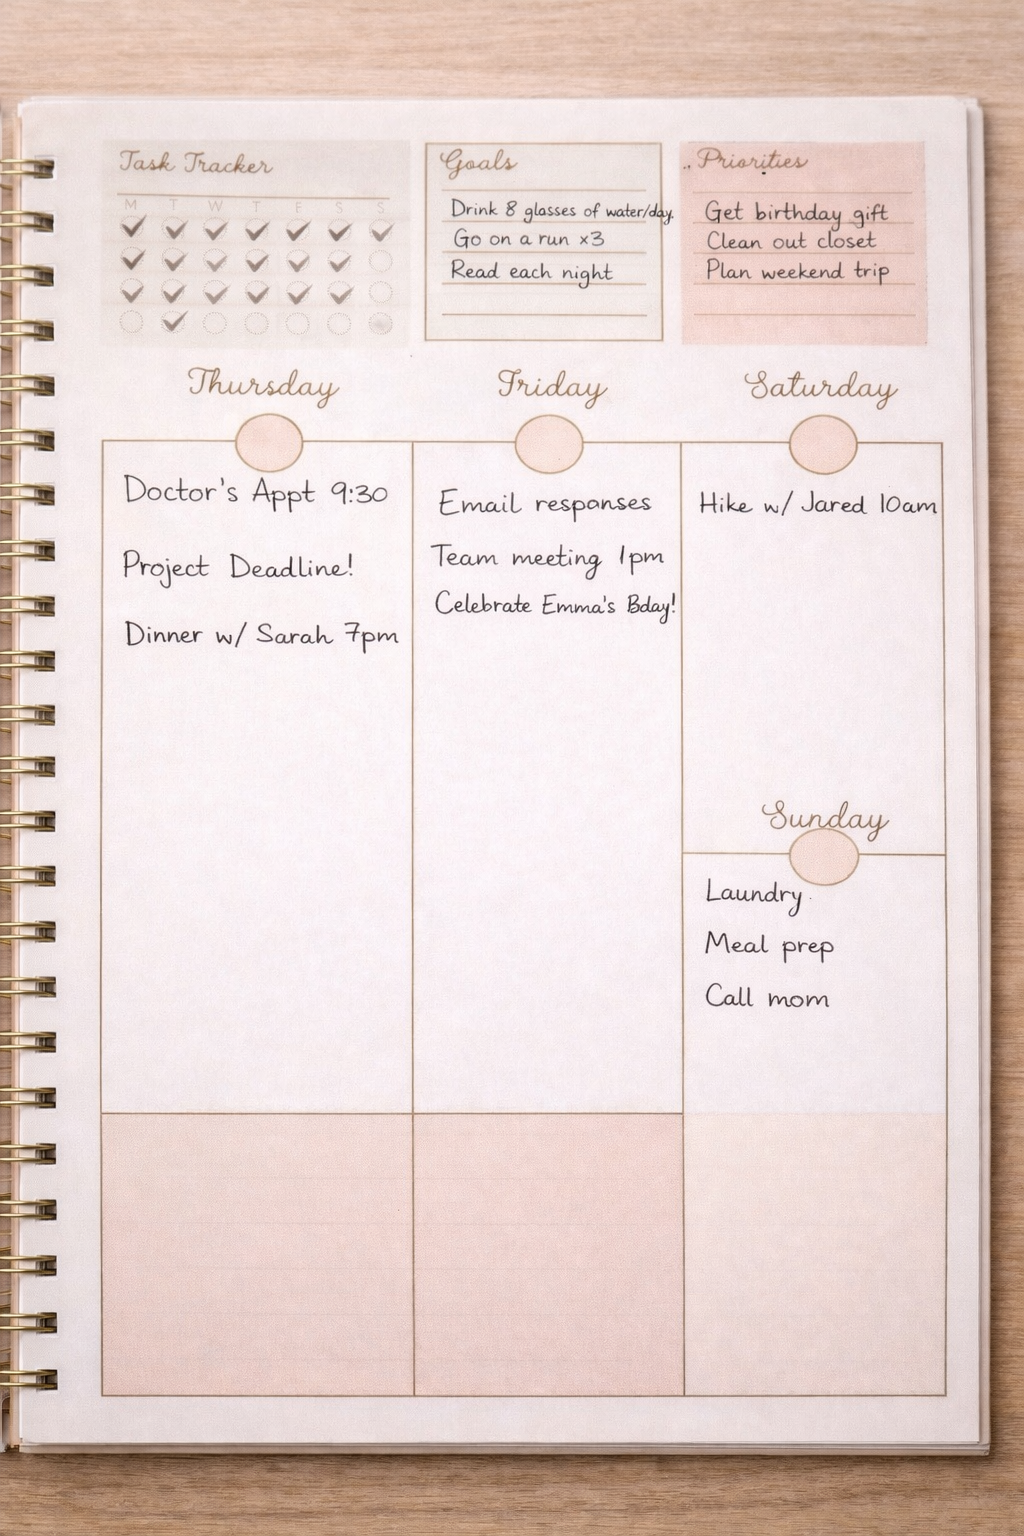 Task Tracker
M T W T F S S
Goals
Drink 8 glasses of water/day.
Go on a run x3
Read each night
Priorities
Get birthday gift
Clean out closet
Plan weekend trip
Thursday
Doctor's Appt 9:30
Project Deadline!
Dinner w/ Sarah 7pm
Friday
Email responses
Team meeting 1pm
Celebrate Emma's Bday!
Saturday
Hike w/ Jared 10am
Sunday
Laundry
Meal prep
Call mom